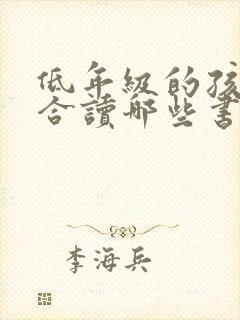 低年級的孩
合讀哪些書
李海兵